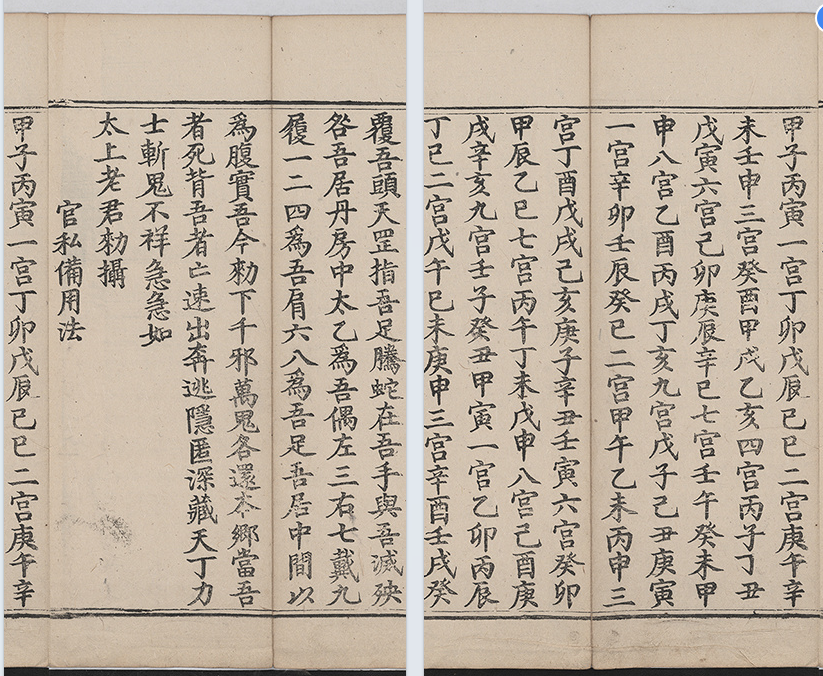 覆吾頭天罡指吾足騰蛇在吾手與吾滅殃
咎吾居丹房中太乙爲吾偶左三右七戴九
履一二四爲吾肩六八爲吾足吾居中間以
爲腹實吾今勑下千邪萬鬼各還本鄉當吾
者死背吾者亡速出奔逃隱匿深藏天丁力
士斬鬼不祥急急如
太上老君勑攝
官私備用法
甲子丙寅一宮丁卯戊辰己巳二宮庚午辛
甲子丙寅一宮丁卯戊辰己巳二宮庚午辛
未壬申三宮癸酉甲戌乙亥四宮丙子丁丑
戊寅六宮己卯庚辰辛巳七宮壬午癸未甲
申八宮乙酉丙戌丁亥九宮戊子己丑庚寅
一宮辛卯壬辰癸巳二宮甲午乙未丙申三
宮丁酉戊戌己亥庚子辛丑壬寅六宮癸卯
甲辰乙巳七宮丙午丁未戊申八宮己酉庚
戌辛亥九宮壬子癸丑甲寅一宮乙卯丙辰
丁巳二宮戊午己未庚申三宮辛酉壬戌癸